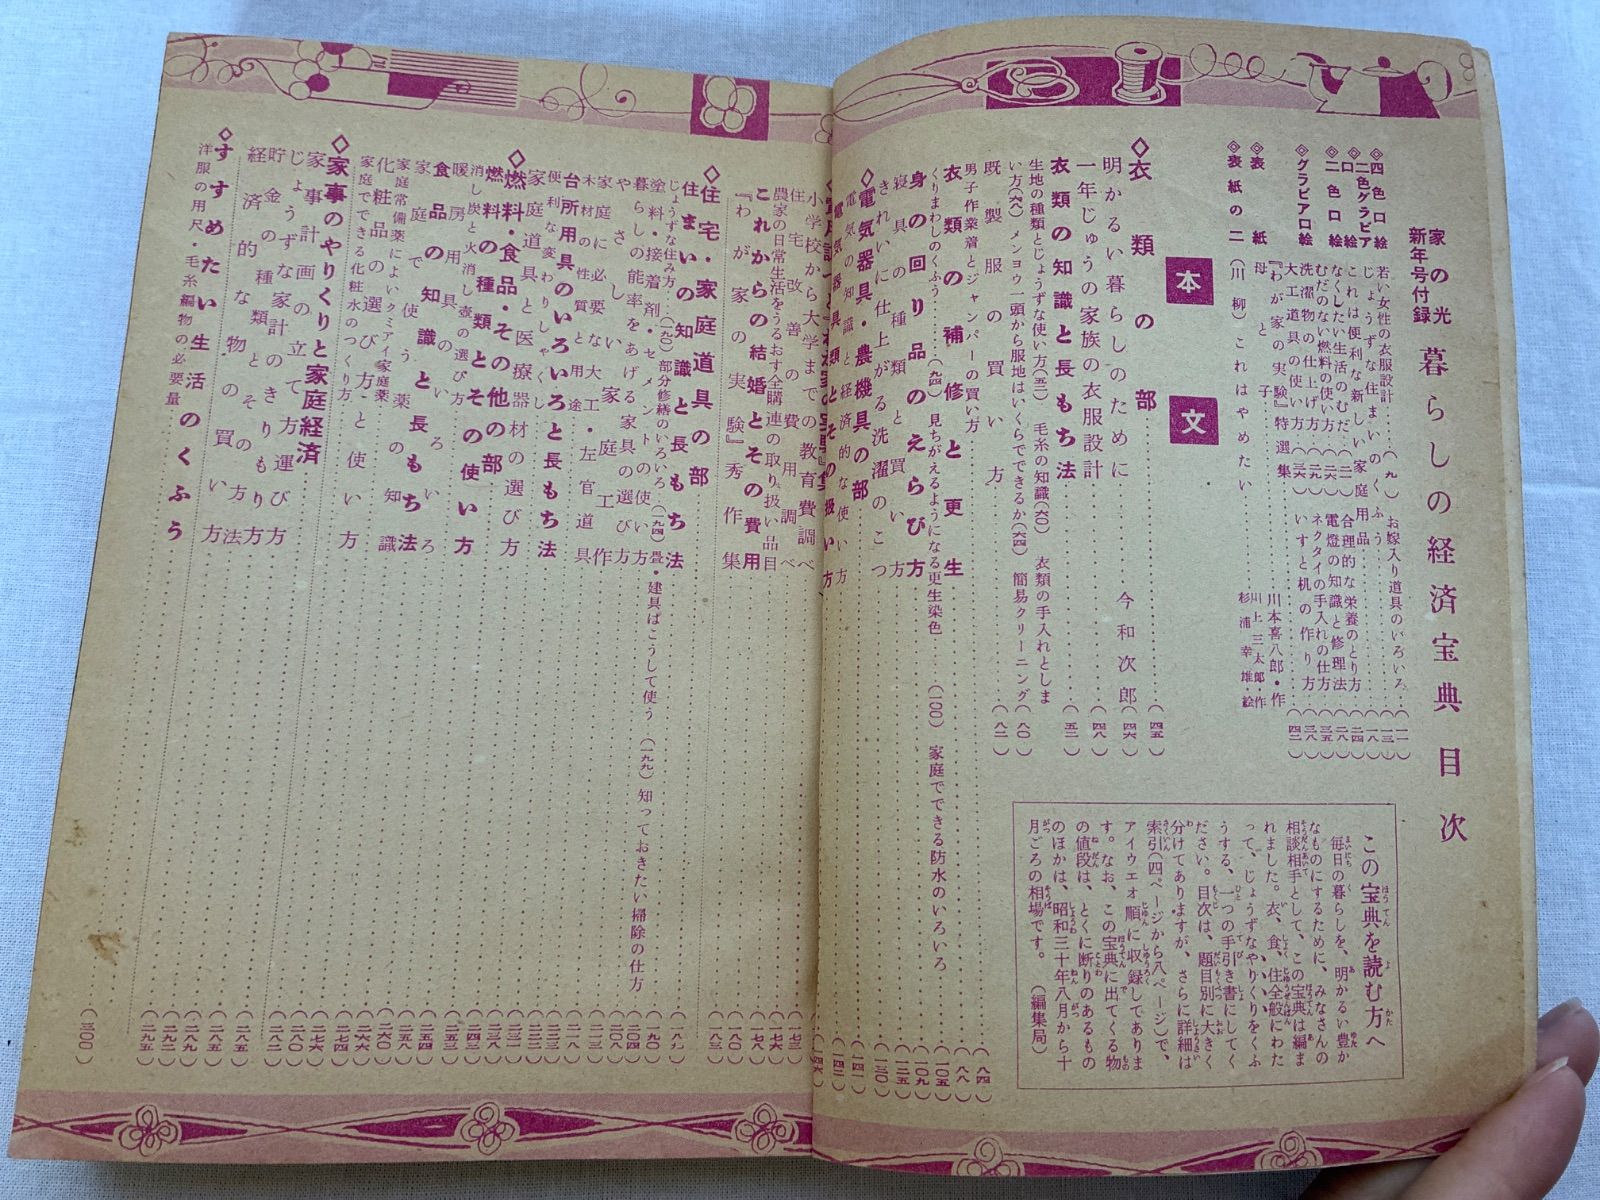 家の光
新年号付録
暮らしの経済宝典 目次
◇四色口絵
若い女性の衣服設計
◇二色グラビア口絵
じょうずな住まいのくふう
(九)
お嫁入り道具のいろいろ
(一一)
(一三)
これは便利な新しい家庭用品
(一八)
◇二色口絵
なくしたい生活のむだ
(二一)
合理的な栄養のとり方
(二四)
むだのない燃料の使い方
(二六)
電燈の知識と修理法
(二八)
◇グラビア口絵
洗濯物の仕上げ方
(二九)
ネクタイの手入れの仕方
(三五)
大工道具の使い方
(三六)
いすと机の作り方
(三八)
『わが家の実験』特選集
(四二)
◇表紙
母と子
川本喜八郎・作
◇表紙の二
(川柳)これはやめたい
川上三太郎・作
杉浦幸雄絵
本文
◇衣類の部
(四五)
明かるい暮らしのために
今和次郎
(四六)
一年じゅうの家族の衣服設計
(四八)
衣類の知識と長もち法
(五二)
生地の種類とじょうずな使い方(五二) 毛糸の知識(六〇) 衣類の手入れとしま
い方(六八) メンヨウ一頭から服地はいくらでできるか(六四) 簡易クリーニング(八〇)
既製服の買い方
(八二)
男子作業着とジャンパーの買い方
(八四)
衣類の補修と更生
(八八)
くりまわしのくふう(九四) 見ちがえるようになる更生染色(一〇〇) 家庭でできる防水のいろいろ
(一〇五)
身の回り品のえらび方
(一〇九)
寝具の種類と買い方
(一二五)
きれいに仕上がる洗濯のこつ
(一三〇)
◇電気器具・農機具の部
(一四一)
電気の知識と経済的な使い方
(一四二)
電気器具の種類とその扱い方
(一四六)
小学校から大学までの教育費調べ
(一七三)
住宅改善の費用調べ
(一七六)
農家の日常生活をうるおす全購連の取り扱い品目
(一七八)
これからの結婚とその費用
(一八〇)
『わが家の実験』秀作集
(一八三)
◇住宅・家庭道具の部
(一八九)
住まいの知識と長もち法
(一九〇)
じょうずな住み方(一九〇) 部分修繕のいろいろ(一九四) 畳・建具はこうして使う(一九九) 知っておきたい掃除の仕方
塗料・接着剤・セメントの使い方
(二〇四)
暮らしの能率をあげる家具の選び方
やさしい家庭工作
家庭に必要な大工・左官道具
木材の性質と用途
台所用具のいろいろと長もち法
便利な変わりしゃくし
家庭道具と医療器材の選び方
◇燃料・食品・その他の部
燃料の種類とその使い方
消し炭と火消し壺の選び方
暖房用具のいろいろ
食品の知識と長もち法
家庭で使う薬の知識
家庭常備薬によいクミアイ家庭薬
化粧品の選び方と使い方
家庭でできる化粧水のつくり方
◇家事のやりくりと家庭経済
家事計画の立て方運び方
じょうずな家計のきりもり方
貯金の種類とその方法
経済的な物の買い方
◇すすめたい生活のくふう
洋服の用尺・毛糸編物の必要量
(三〇〇)
この宝典を読む方へ
毎日の暮らしを、明かるい豊か
なものにするために、みなさんの
相談相手として、この宝典は編ま
れました。衣、食、住全般にわた
って、じょうずなやりくりをくふ
うする、一つの手引き書にしてく
ださい。目次は、題目別に大きく
分けてありますが、さらに詳細は
索引(四ページから八ページ)で、
アイウエオ順に収録してありま
す。なお、この宝典に出てくる物
の値段は、とくに断りのあるもの
のほかは、昭和三十年八月から十
月ごろの相場です。 (編集局)